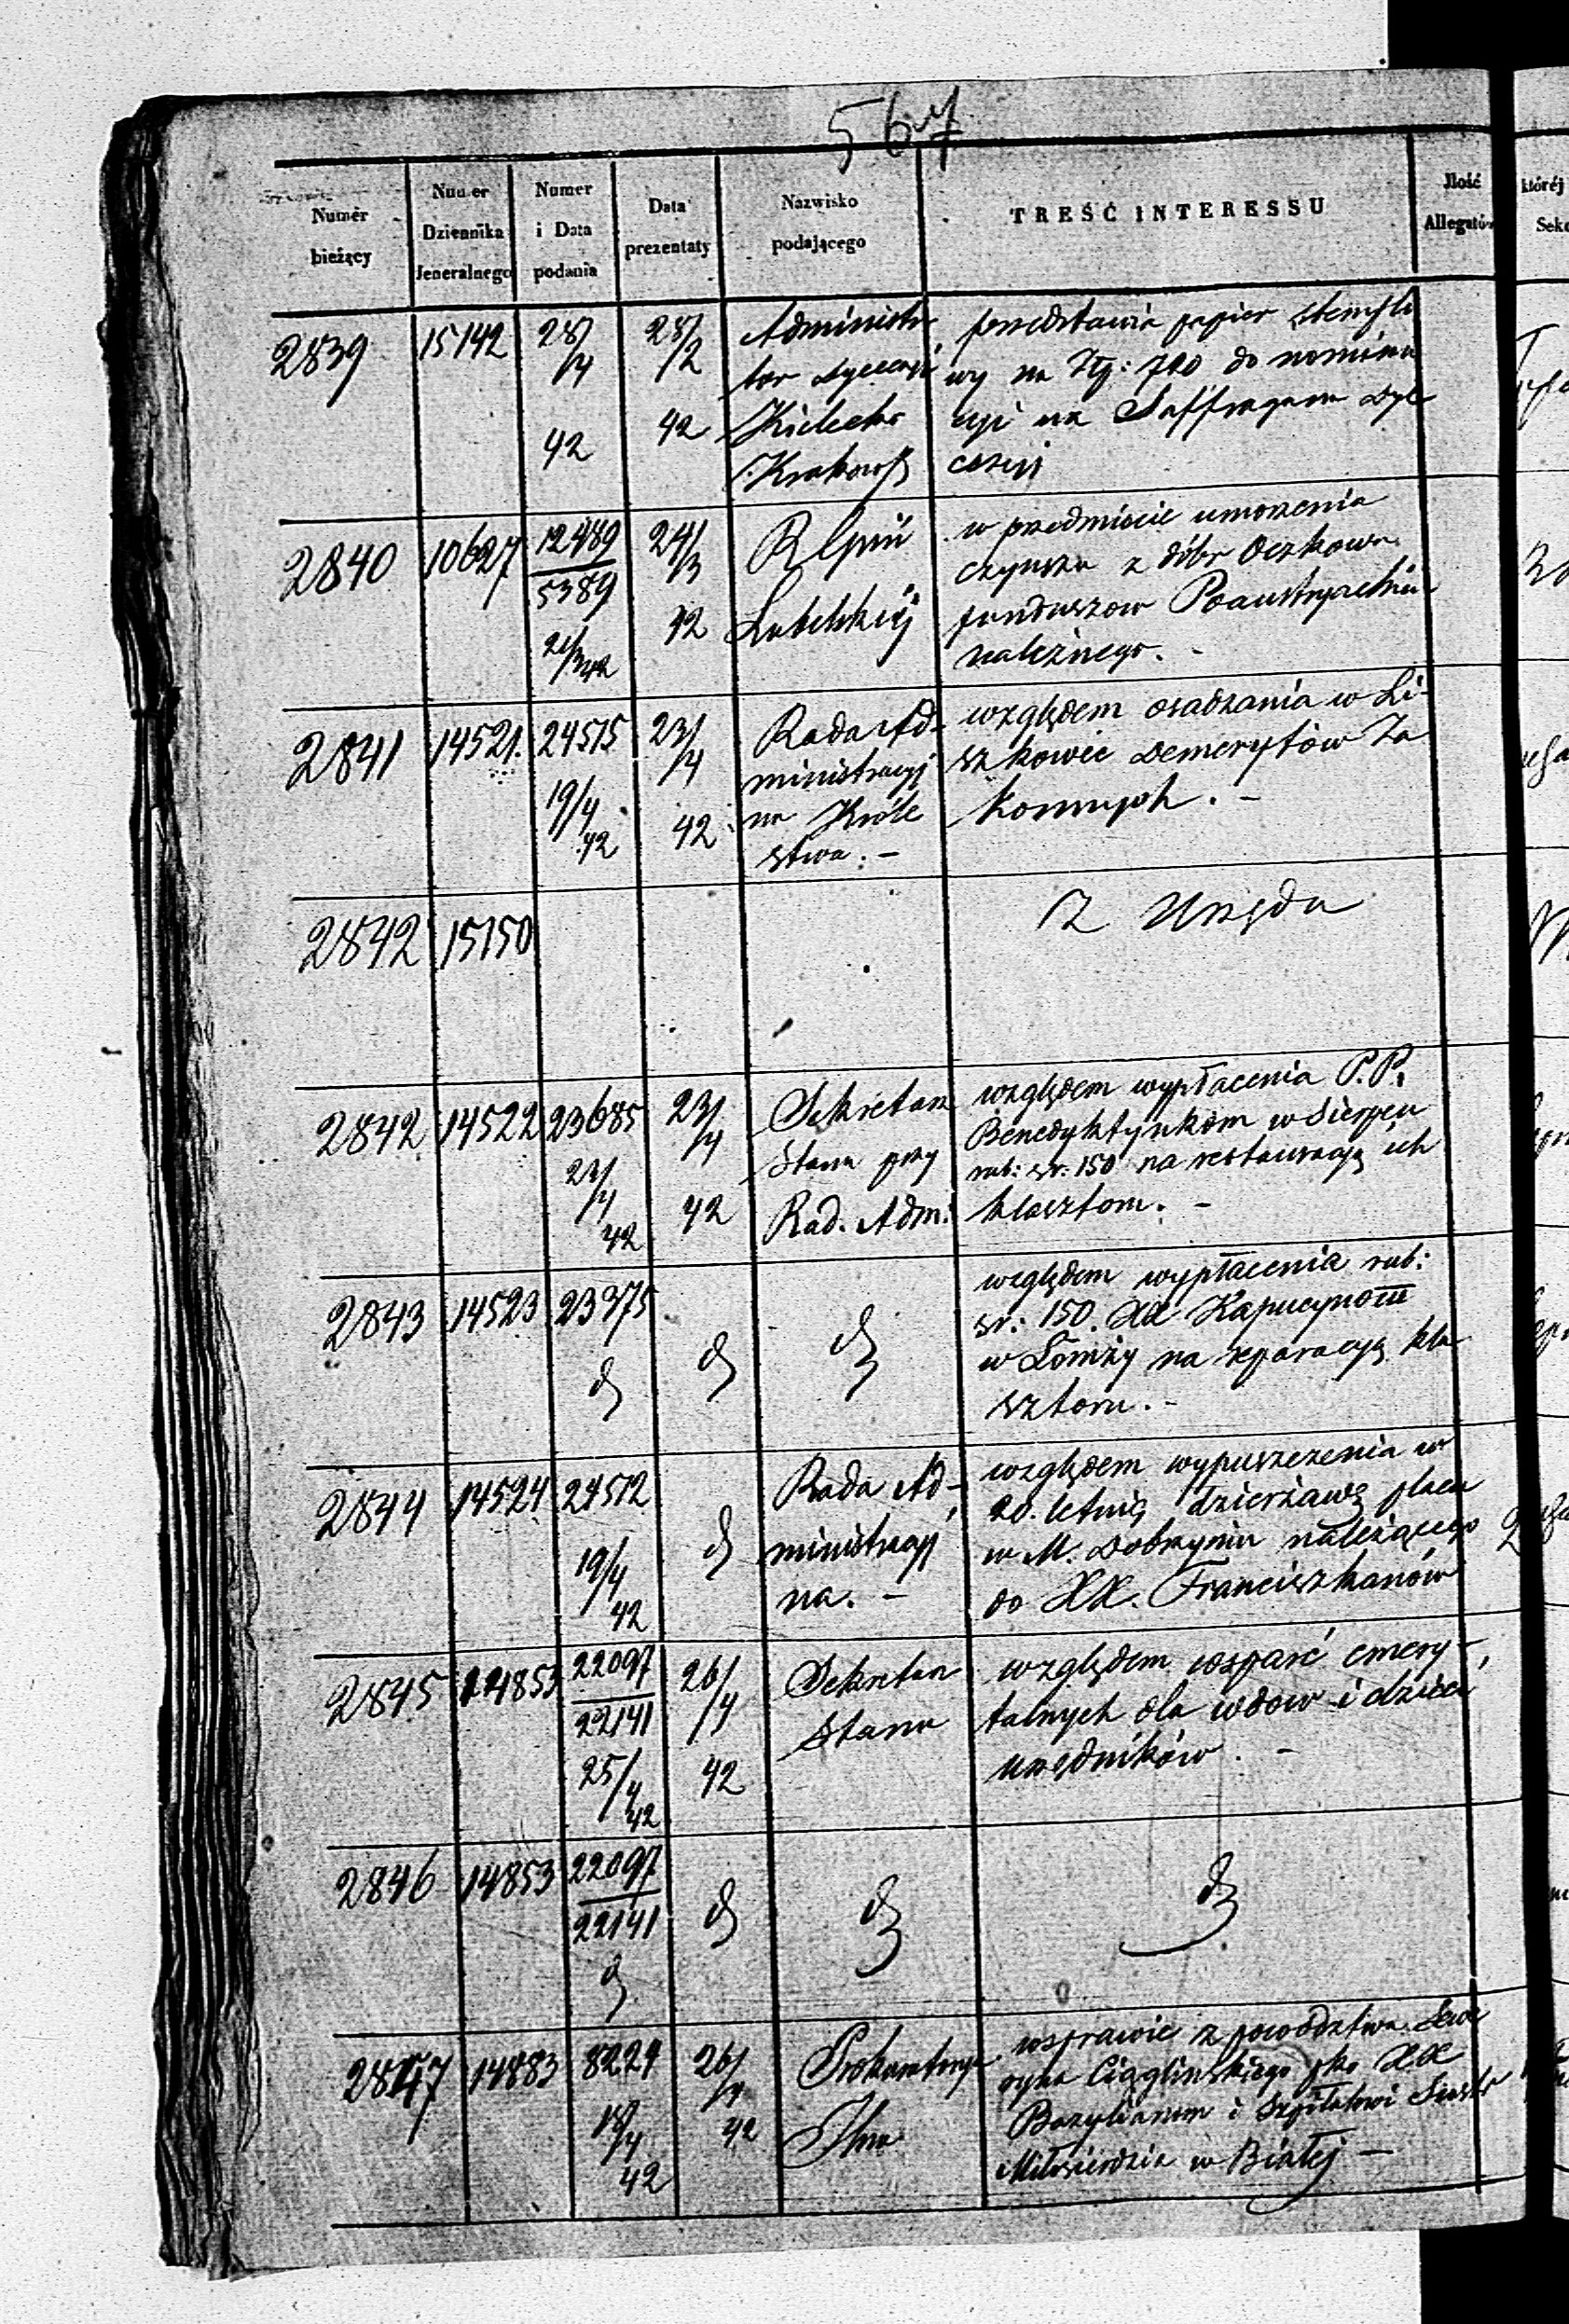 567
Numer bieżący
Numer Dziennika Jeneralnego
Numer i Data podania
Data prezentaty
Nazwisko podającego
TREŚĆ INTERESSU
Ilość Allegatów
której
2839 15142 28/4 42 28/2 42
Administra
tor dyecezji
Kielecko
Krakowsk
przedstawia papier stemplo
wy na Złp: 700 do nomina
cyi na Suffragana Dye
cezyi
2840 10627 12489/5389 21/3 42 24/3 42
R Gpiń
Lubelskiej
w przedmiocie umorzenia
czynszu z dóbr Oczkowa
funduszow Poaustryackim
należnego. -
2841 14521. 24515 19/4 42 23/4 42
Rada Ad-
ministracyj
na Króle
stwa. -
względem osadzania w Li-
szkowie Demerytów Za
konnych. -
2842 15150
Z Urzędu
2842 14522 23685 23/4 42 23/4 42
Sekretarz
Stanu przy
Rad. Adm:
względem wypłacenia P.P.
Benedyktynkom w Sierpcu
rub: sr: 150 na restauracyą ich
klasztoru. -
2843 14523 23375
względem wypłacenia rub:
sr: 150. XX Kapucynom
w Łomży na reparacyą kla
sztoru. -
2844 14524 24512 19/4 42
Rada Ad-
ministracyj
na. -
względem wypuszczenia w
20. letnią dzierżawę placu
w M. Dobrzyniu należącego
do XX. Franciszkanów
2845 14853 22097/22141 25/4 42 26/4 42
Sekretarz
Stanu
względem wsparć emery-
talnych dla wdow i dzieci
urzędników. -
2846 14853 22097/22141
2847 14883 8229 18/4 42 26/4 42
Prokuratorya
w sprawie z powództwa Sewe
ryna Ciąglińskiego pko XX
Bazylianom i Szpitalowi Siostr
Miłosierdzia w Białej -